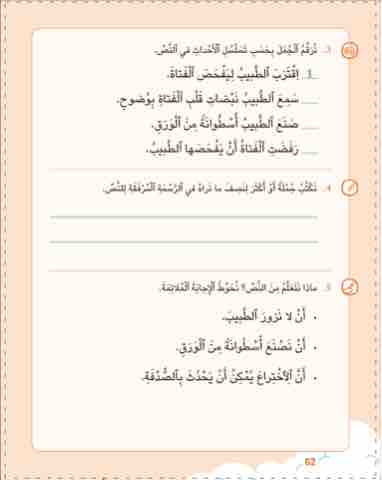 3. نُرَقِّمُ الْجُمَلَ بِحَسَبِ تَسَلْسُلِ الْأَحْداثِ في النَّصِّ.
1 اِقْتَرَبَ الطَّبيبُ لِيَفْحَصَ الْفَتاةَ.
سَمِعَ الطَّبيبُ نَبَضاتِ قَلْبِ الْفَتاةِ بِوُضوحٍ.
صَنَعَ الطَّبيبُ أُسْطُوانَةً مِنَ الْوَرَقِ.
رَفَضَتِ الْفَتاةُ أَنْ يَفْحَصَها الطَّبيبُ.
4. نَكْتُبُ جُمْلَةً أَوْ أَكْثَرَ لِنَصِفَ ما نَراهُ في الرَّسْمَةِ الْمُرْفَقَةِ لِلنَّصِّ.
5. ماذا نَتَعَلَّمُ مِنَ النَّصِّ؟ نُحَوِّطُ الْإِجابَةَ الْمُلائِمَةَ.
• أَنْ لا نَزورَ الطَّبيبَ.
• أَنْ نَصْنَعَ أُسْطُوانَةً مِنَ الْوَرَقِ.
• أَنَّ الِاخْتِراعَ يُمْكِنُ أَنْ يَحْدُثَ بِالصُّدْفَةِ.
62